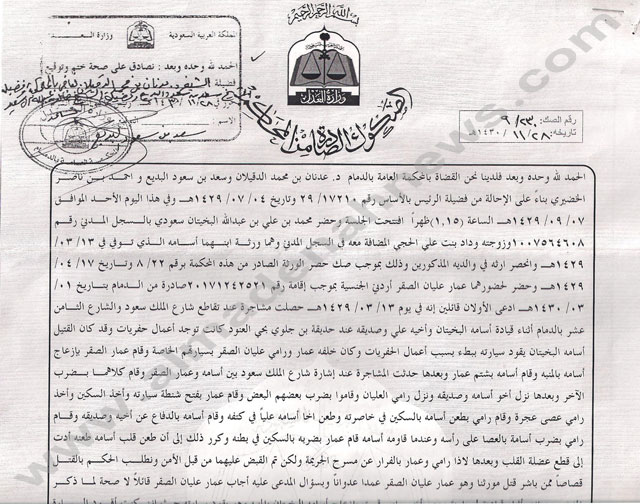 بسم الله الرحمن الرحيم
المملكة العربية السعودية
وزارة العدل
وزارة العـــدل
الحمد لله وحده وبعد : نصادق على صحة ختم وتوقيع
فضيلة
الاسم
رقم الصك: ٩/٢٣٠
تاريخه: ١٤٣٠/١١/٢٨هـ
الحمد لله وحده وبعد فلدينا نحن القضاة بالمحكمة العامة بالدمام د. عدنان بن محمد الدقيلان وسعد بن سعود البديع و احمد بن ناصر
الخضيري بناءً على الإحالة من فضيلة الرئيس بالأساس رقم ٢٩/١٧٢١٠ وتاريخ ١٤٢٩/٠٧/٠٤هـ وفي هذا اليوم الأحد الموافق
١٤٢٩/٠٩/٠٧هـ الساعة (١,١٥) ظهراً افتتحت الجلسة وحضر محمد بن علي بن عبدالله البخيتان سعودي بالسجل المدني رقم
١٠٠٧٥٦٤٦٠٨ وزوجته وداد بنت علي الحجي المضافة معه في السجل المدني وهما ورثة بنهما أسامه الذي توفي في ٠٣/١٣/
١٤٢٩هـ وانحصر ارثه في والديه المذكورين وذلك بموجب صك حصر الورثة الصادر من هذه المحكمة برقم ٨/٢٢ وتاريخ ٠٤/١٧
١٤٢٩هـ وحضر لحضورهما عمار عليان الصقر أردني الجنسية بموجب إقامة رقم ٢٠١٧١٢٤٢٥٢١ صادرة من الدمام بتاريخ ٠١/
٠٣/١٤٣٠هـ ادعى الأولان قائلين إنه في يوم ١٤٢٩/٠٣/١٣هـ حصلت مشاجرة عند تقاطع شارع الملك سعود والشارع الثامن
عشر بالدمام أثناء قيادة أسامه البخيتان وأخيه علي وصديقه عند حديقة بن جلوي بحي العنود كانت توجد أعمال حفريات وقد كان القتيل
أسامه البخيتان يقود سيارته ببطء بسبب أعمال الحفريات وكان خلفه عمار ورامي عليان الصقر بسيارتهم الخاصة وقام عمار بإزعاج
أسامه بالمنبه وقام أسامه بشتم عمار وبعدها حدثت المشاجرة عند إشارة شارع الملك سعود بين أسامه وعمار الصقر وقام كلاهما بضرب
الآخر وبعدها نزل أخو أسامه وصديقه ونزل رامي العليان وقاموا بضرب بعضهم البعض وقام عمار بفتح شنطة سيارته وأخذ السكين وأخذ
رامي عصى عجرة وقام رامي بطعن أسامه بالسكين في خاصرته وطعن اخا أسامه علياً في كتفه وقام أسامه بالدفاع عن أخيه وصديقه وقام
رامي بضرب أسامة بالعصا على رأسه وعندما قاومه أسامه قام عمار بضربه بالسكين في بطنه وكرر ذلك إلى أن طعن قلب أسامه طعنه أدت
إلى قطع عضلة القلب وبعدها لاذا رامي وعمار بالفرار عن مسرح الجريمة ولكن تم القبض عليهما من قبل الأمن ونطلب الحكم بالقتل
قصاصاً ممن باشر قتل مورثنا وهو عمار عليان الصقر عمدا عدواناً وبسؤال المدعى عليه أجاب عمار عليان الصقر قائلاً لا صحة لما ذكر
www.almadenahnews.com